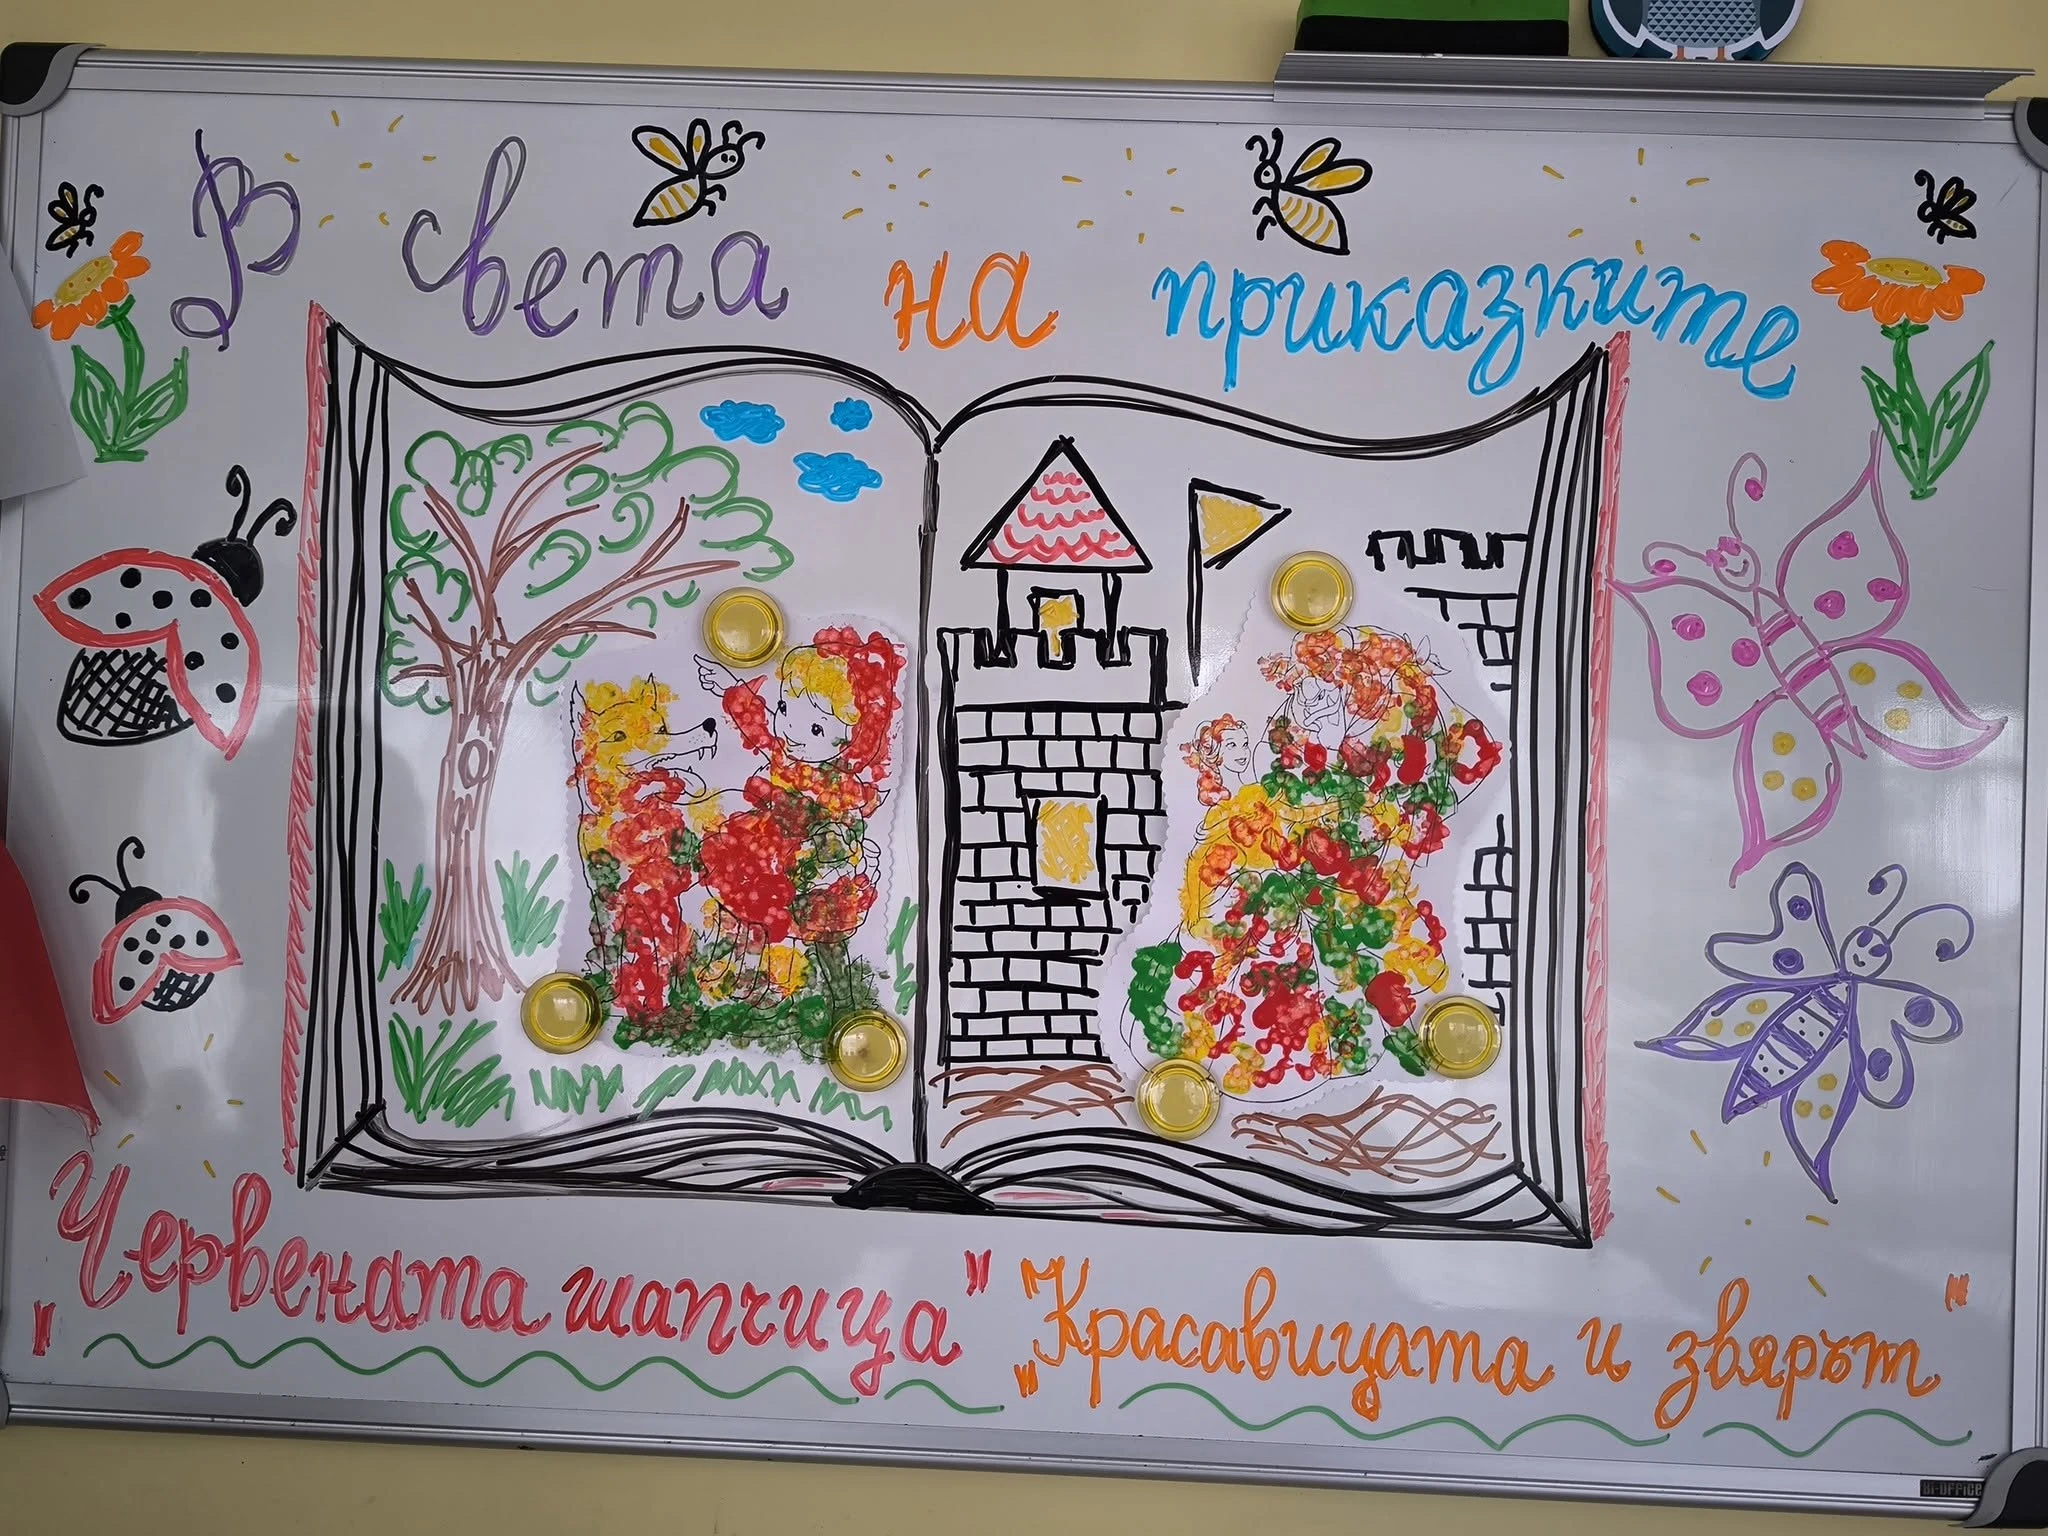 В света на приказките
"Червената шапчица" "Красавицата и звярът"
Bi-Office